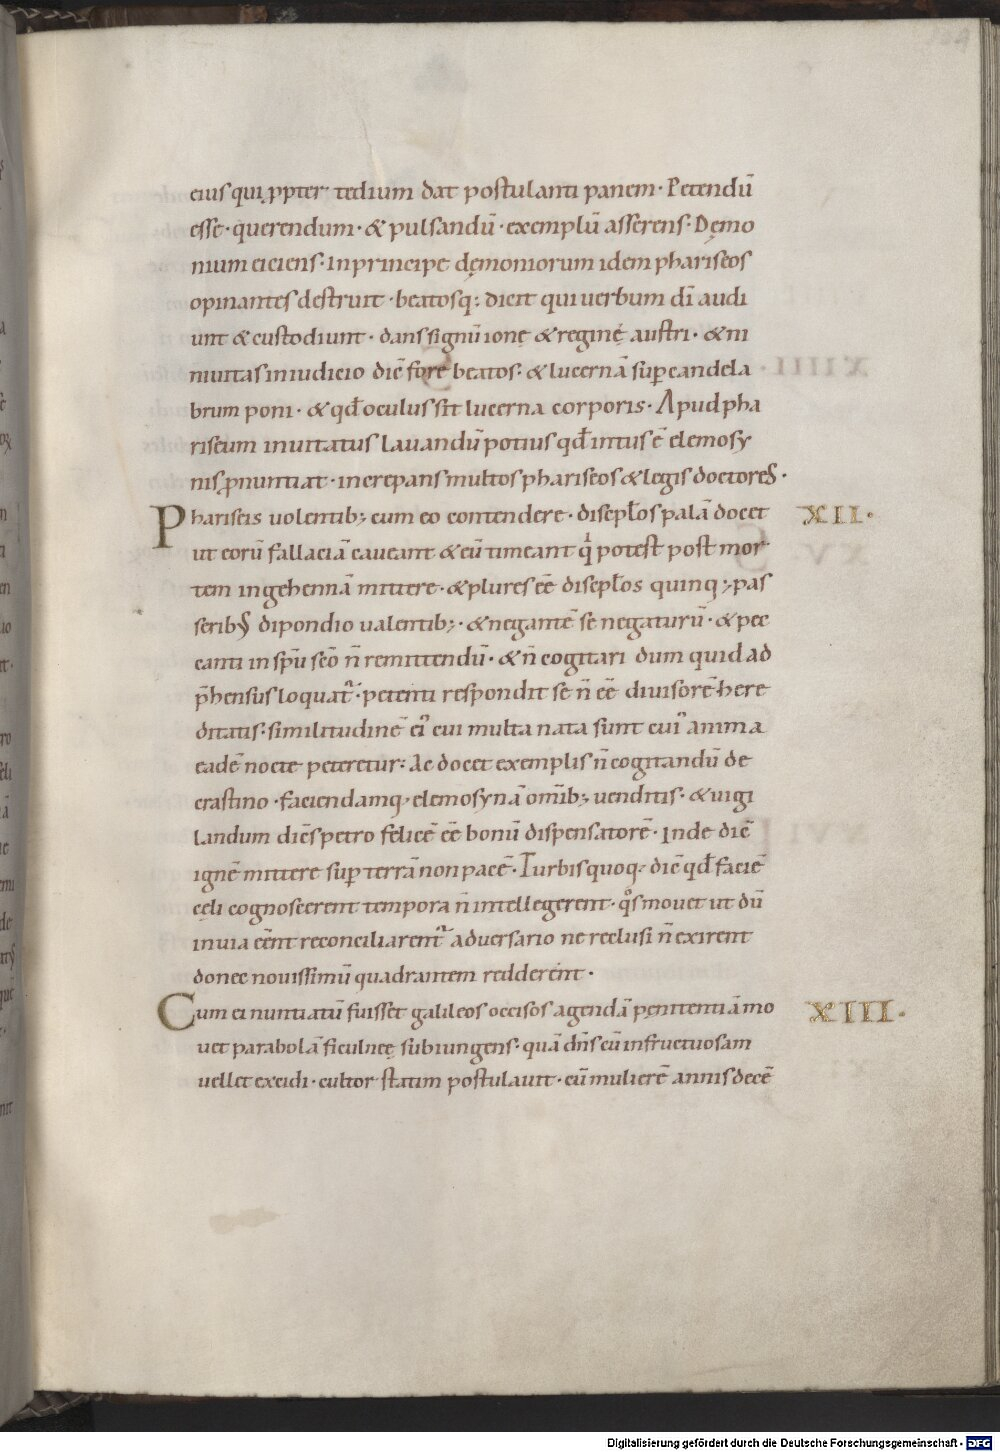 eius qui ꝓpter tedium dat postulanti panem · Petendū
esse · querendum · & pulsandū · exemplū asserens · Dęmo
nium eiciens · In principe dęmoniorum idem phariseos
opinantes destruit · beatosq; dicit qui uerbum dī audi
unt & custodiunt · dans signū ionę & reginę austri · & ni
niuitas in iudicio diē fore beatos · & lucernā suꝑ candela
brum poni · & qd̄ oculus sit lucerna corporis · Apud pha
riseum inuitatus Lauandū potius qd̄ intus ē elemosy
nis ꝓnuntiat · increpans multos phariseos & legis doctores ·
Phariseis uolentib; cum eo contendere · discipl̄os palā docet XII ·
ut eorū fallaciā caueant & eū timeant qͥ potest post mor
tem in gehennā mittere · & plures eē discipl̄os quinq; pas
seribus dipondio ualentib; · & negantē se negaturū · & pec
canti in sp̄u sc̄o n̄ remittendū · & n̄ cogitari dum quid ad
p̄hensus loquat᷑ · petenti respondit se n̄ eē diuisorē here
ditatis · similitudinē ei᷒ cui multa nata sunt cui᷒ anima
eadē nocte peteretur · Ac docet exemplis n̄ cogitandū de
crastino · faciendamq; elemosynā om̄ib; uenditis · & uigi
landum diēs petro felicē eē bonū dispensatorē · Inde diē
ignē mittere suꝑ terrā non pacē · Turbis quoq; diē qd̄ faciē
cęli cognoscerent tempora n̄ intellegerent · qͦs mouet ut dū
in uia eēnt reconciliarent᷑ aduersario ne reclusi n̄ exirent
donec nouissimū quadrantem redderent ·
Cum ei nuntiatū fuisset galileos occisos agendā pęnitentiā mo XIII ·
uet parabolā ficulneę subiungens · quā dn̄s cū infructuosam
uellet excidi · cultor statim postulauit · cū mulierē annis decē
Digitalisierung gefördert durch die Deutsche Forschungsgemeinschaft - DFG